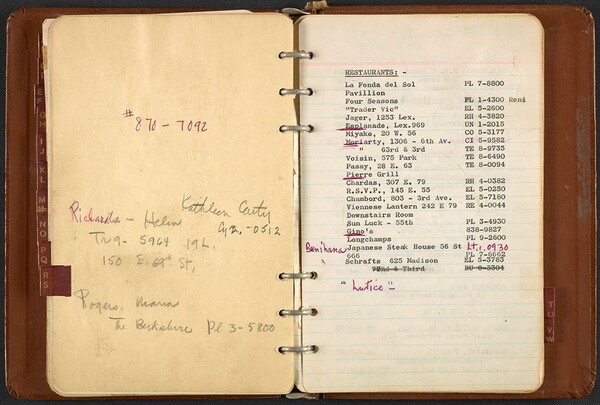 EF
G
H
IJ
K
L
M
NO
PQ
RS
# 870-7092
Kathleen Carty
Cy 2.-0512
Richards - Helen
Tr 9-5964 19 L.
150 E. 69th St,
Rogers, Maria
The Berkshire Pl 3-5800
RESTAURANTS: -
La Fonda del Sol PL 7-8800
Pavillion
Four Seasons PL 1-4300 Reni
"Trader Vic" EL 5-2600
Jager, 1253 Lex. RH 4-3820
Esplanade, Lex.969 UN 1-2015
Miyako, 20 W. 56 CO 5-3177
Moriarty, 1306 - 6th Av. CI 5-9582
" 63rd & 3rd TE 8-9735
Voisin, 575 Park TE 8-6490
Passy, 28 E. 63 TE 8-0094
Pierre Grill
Chardas, 307 E. 79 RH 4-0382
R.S.V.P., 145 E. 55 EL 5-0250
Chambord, 803 - 3rd Ave. EL 5-7180
Viennese Lantern 242 E 79 RE 4-0404
Downstairs Room
Sun Luck - 55th PL 3-4930
Gino's 838-9827
Longchamps PL 9-2600
Benihana Japanese Steak House 56 St Lt.1.0930
666 PL 7-6662
Schrafts 625 Madison EL 5-3783
72nd & Third BU 8-3304
"Lutice"
TU
VW